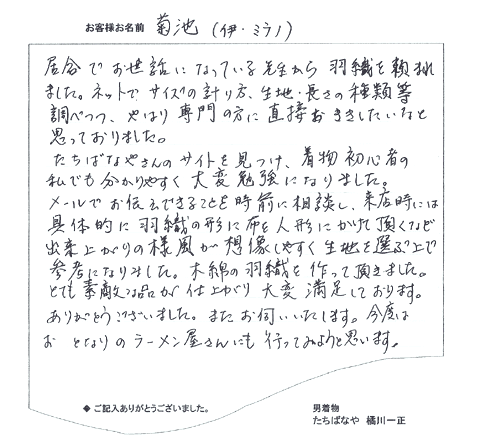 お客様お名前 菊池 (伊・ミラノ)
居合でお世話になっている先生から羽織を頼まれ
ました。ネットでサイズの計り方、生地・長さの種類等
調べつつ、やはり専門の方に直接おききしたいなと
思っておりました。
たちばなやさんのサイトを見つけ、着物初心者の
私でも分かりやすく大変勉強になりました。
メールでお伝えできることを時前に相談し、来店時には
具体的に羽織の形に布を人形にかけて頂くなど
出来上がりの様風が想像しやすく生地を選ぶ上で
参考になりました。木綿の羽織を作って頂きました。
とても素敵な品が仕上がり大変満足しております。
ありがとうございました。またお伺いいたします。今度は
おとなりのラーメン屋さんにも行ってみようと思います。
◆ ご記入ありがとうございました。
男着物
たちばなや 橘川一正